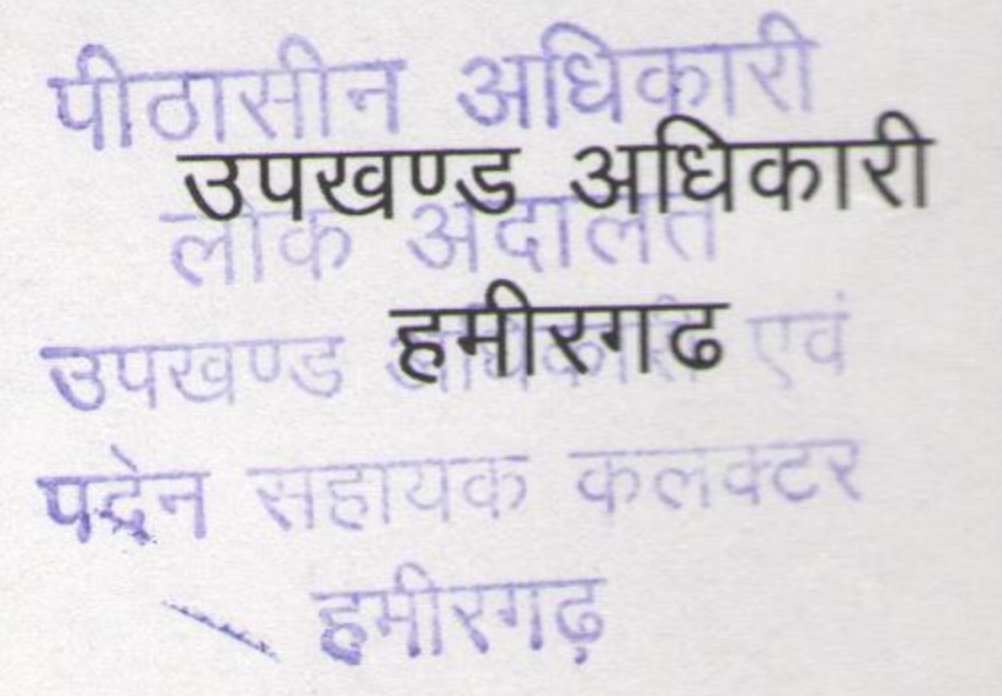 पीठासीन अधिकारी
उपखण्ड अधिकारी
लोक अदालत
हमीरगढ
उपखण्ड अधिकारी एवं
पदेन सहायक कलक्टर
हमीरगढ़